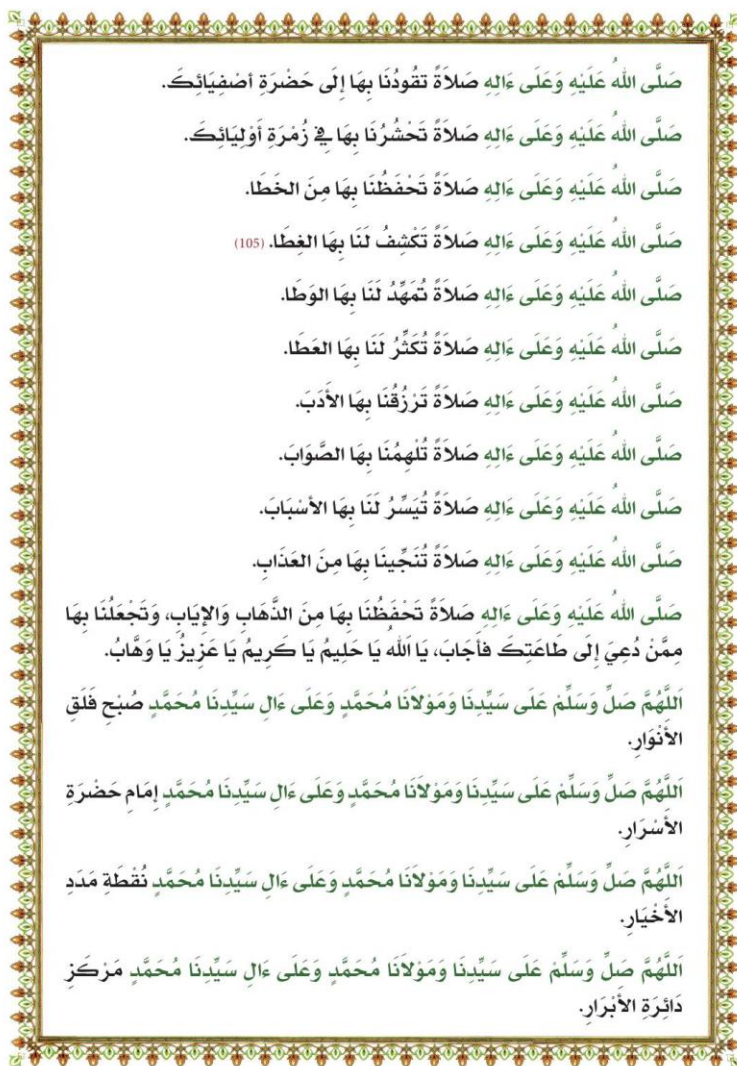 صَلَّى اللهُ عَلَيْهِ وَعَلَى ءَالِهِ صَلاَةً تَقُودُنَا بِهَا إِلَى حَضْرَةِ أَصْفِيَائِكَ.
صَلَّى اللهُ عَلَيْهِ وَعَلَى ءَالِهِ صَلاَةً تَحْشُرُنَا بِهَا فِي زُمْرَةِ أَوْلِيَائِكَ.
صَلَّى اللهُ عَلَيْهِ وَعَلَى ءَالِهِ صَلاَةً تَحْفَظُنَا بِهَا مِنَ الخَطَا.
صَلَّى اللهُ عَلَيْهِ وَعَلَى ءَالِهِ صَلاَةً تَكْشِفُ لَنَا بِهَا الغِطَا. (105)
صَلَّى اللهُ عَلَيْهِ وَعَلَى ءَالِهِ صَلاَةً تُمَهِّدُ لَنَا بِهَا الوَطَا.
صَلَّى اللهُ عَلَيْهِ وَعَلَى ءَالِهِ صَلاَةً تُكَثِّرُ لَنَا بِهَا العَطَا.
صَلَّى اللهُ عَلَيْهِ وَعَلَى ءَالِهِ صَلاَةً تَرْزُقُنَا بِهَا الأَدَبَ.
صَلَّى اللهُ عَلَيْهِ وَعَلَى ءَالِهِ صَلاَةً تُلْهِمُنَا بِهَا الصَّوَابَ.
صَلَّى اللهُ عَلَيْهِ وَعَلَى ءَالِهِ صَلاَةً تُيَسِّرُ لَنَا بِهَا الأَسْبَابَ.
صَلَّى اللهُ عَلَيْهِ وَعَلَى ءَالِهِ صَلاَةً تُنَجِّينَا بِهَا مِنَ العَذَابِ.
صَلَّى اللهُ عَلَيْهِ وَعَلَى ءَالِهِ صَلاَةً تَحْفَظُنَا بِهَا مِنَ الذَّهَابِ وَالإِيَابِ، وَتَجْعَلُنَا بِهَا
مِمَّنْ دُعِيَ إِلَى طَاعَتِكَ فَأَجَابَ، يَا اَللهُ يَا حَلِيمُ يَا كَرِيمُ يَا عَزِيزُ يَا وَهَّابُ.
اَللَّهُمَّ صَلِّ وَسَلِّمْ عَلَى سَيِّدِنَا وَمَوْلاَنَا مُحَمَّدٍ وَعَلَى ءَالِ سَيِّدِنَا مُحَمَّدٍ صُبْحِ فَلَقِ
الأَنْوَارِ.
اَللَّهُمَّ صَلِّ وَسَلِّمْ عَلَى سَيِّدِنَا وَمَوْلاَنَا مُحَمَّدٍ وَعَلَى ءَالِ سَيِّدِنَا مُحَمَّدٍ إِمَامِ حَضْرَةِ
الأَسْرَارِ.
اَللَّهُمَّ صَلِّ وَسَلِّمْ عَلَى سَيِّدِنَا وَمَوْلاَنَا مُحَمَّدٍ وَعَلَى ءَالِ سَيِّدِنَا مُحَمَّدٍ نُقْطَةِ مَدَدِ
الأَخْيَارِ.
اَللَّهُمَّ صَلِّ وَسَلِّمْ عَلَى سَيِّدِنَا وَمَوْلاَنَا مُحَمَّدٍ وَعَلَى ءَالِ سَيِّدِنَا مُحَمَّدٍ مَرْكَزِ
دَائِرَةِ الأَبْرَارِ.